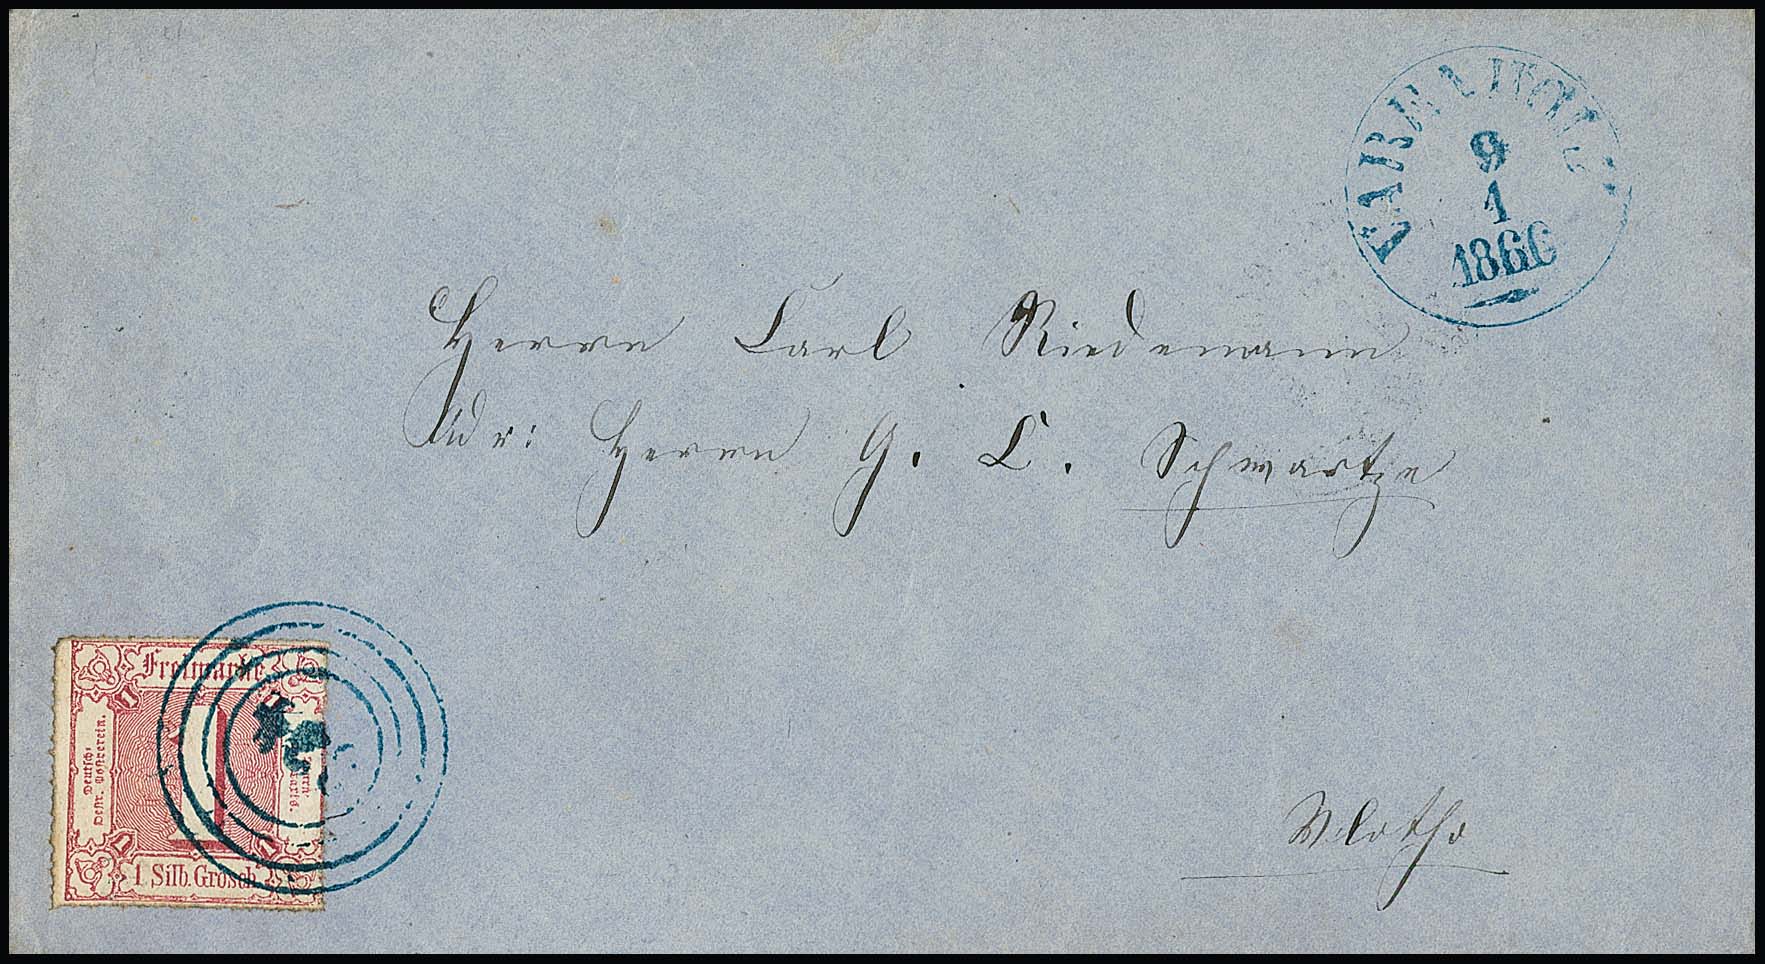 9
1
1866
Herrn Carl Riedemann
Adr: Herrn G. L. Schwartze
Vlotho
Freimarke
Deutsch-
Oestr. Postverein.
1
1 Silb. Grosch.